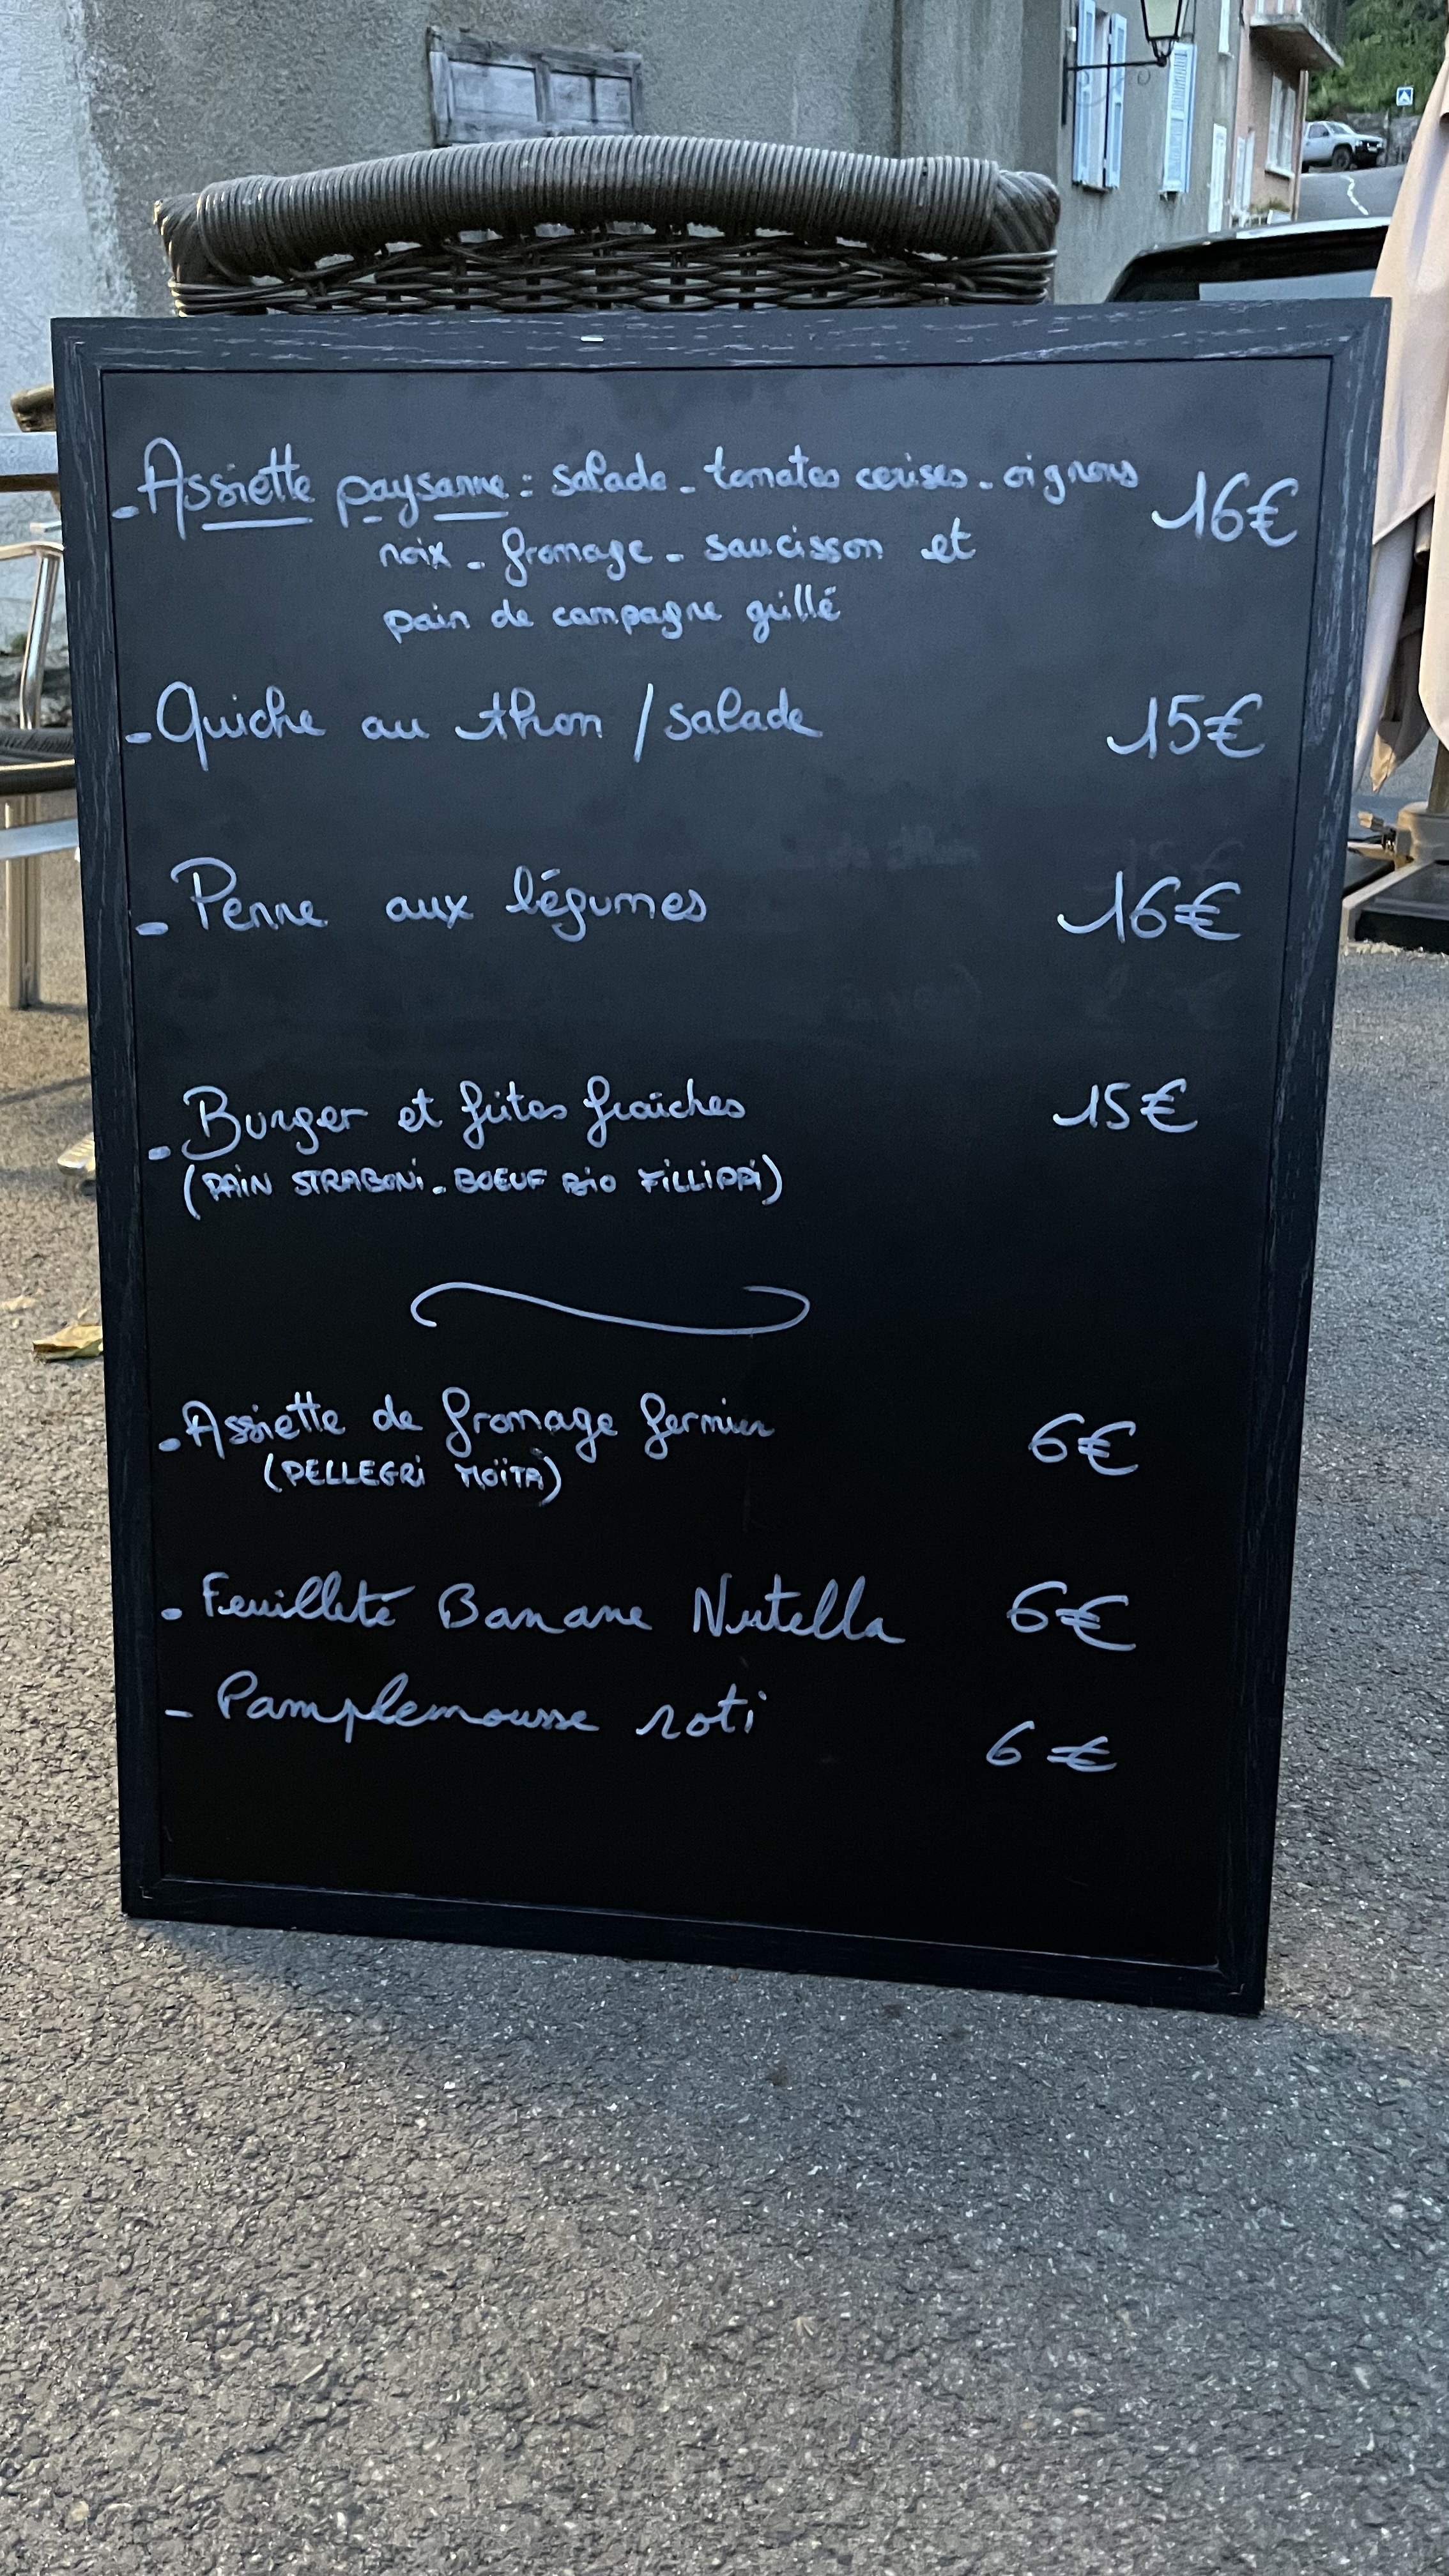 - Assiette paysanne : salade - tomates cerises - oignons 16€
noix - fromage - saucisson et
pain de campagne grillé
- Quiche au thon / salade 15€
- Penne aux légumes 16€
- Burger et frites fraîches 15€
(PAIN STRABONI - BOEUF BIO FILLIPPI)
- Assiette de fromage fermier 6€
(PELLEGRI MOÏTA)
- Feuilleté Banane Nutella 6€
- Pamplemousse roti 6€